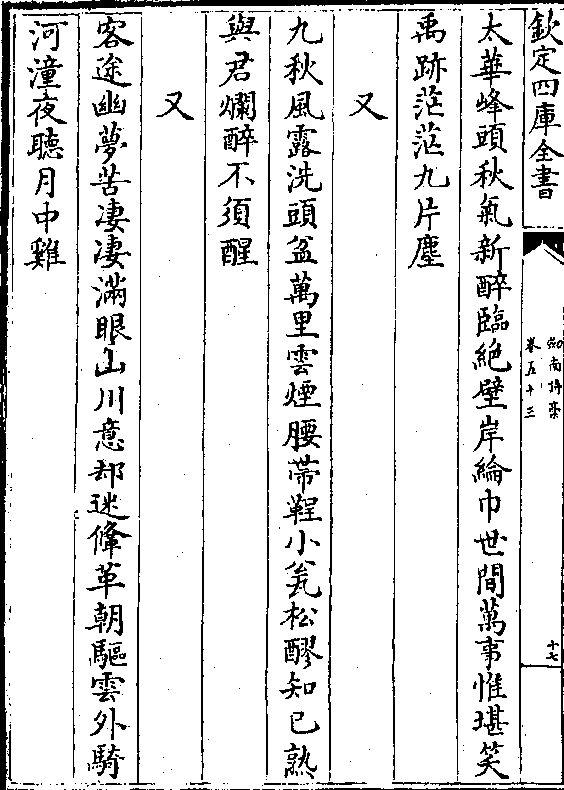 欽定四庫全書
卷五十三
十七
太華峰頭秋氣新醉臨絶壁岸綸巾世間萬事惟堪笑
禹跡茫茫九片塵
又
九秋風露洗頭盆萬里雲煙腰帶鞓小瓮松醪知已熟
與君爛醉不須醒
又
客途幽夢苦凄凄滿眼山川意却迷鞗革朝驅雲外騎
河潼夜聽月中雞